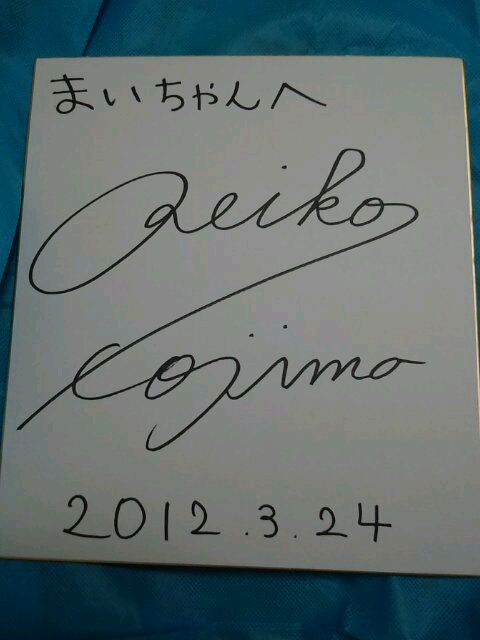 まいちゃんへ
Reiko
Kojima
2012.3.24